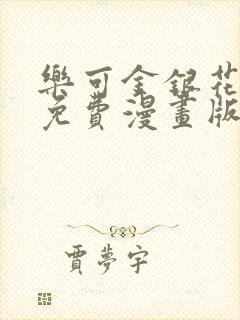 樂可金銀花
免費漫畫版
賈夢宇